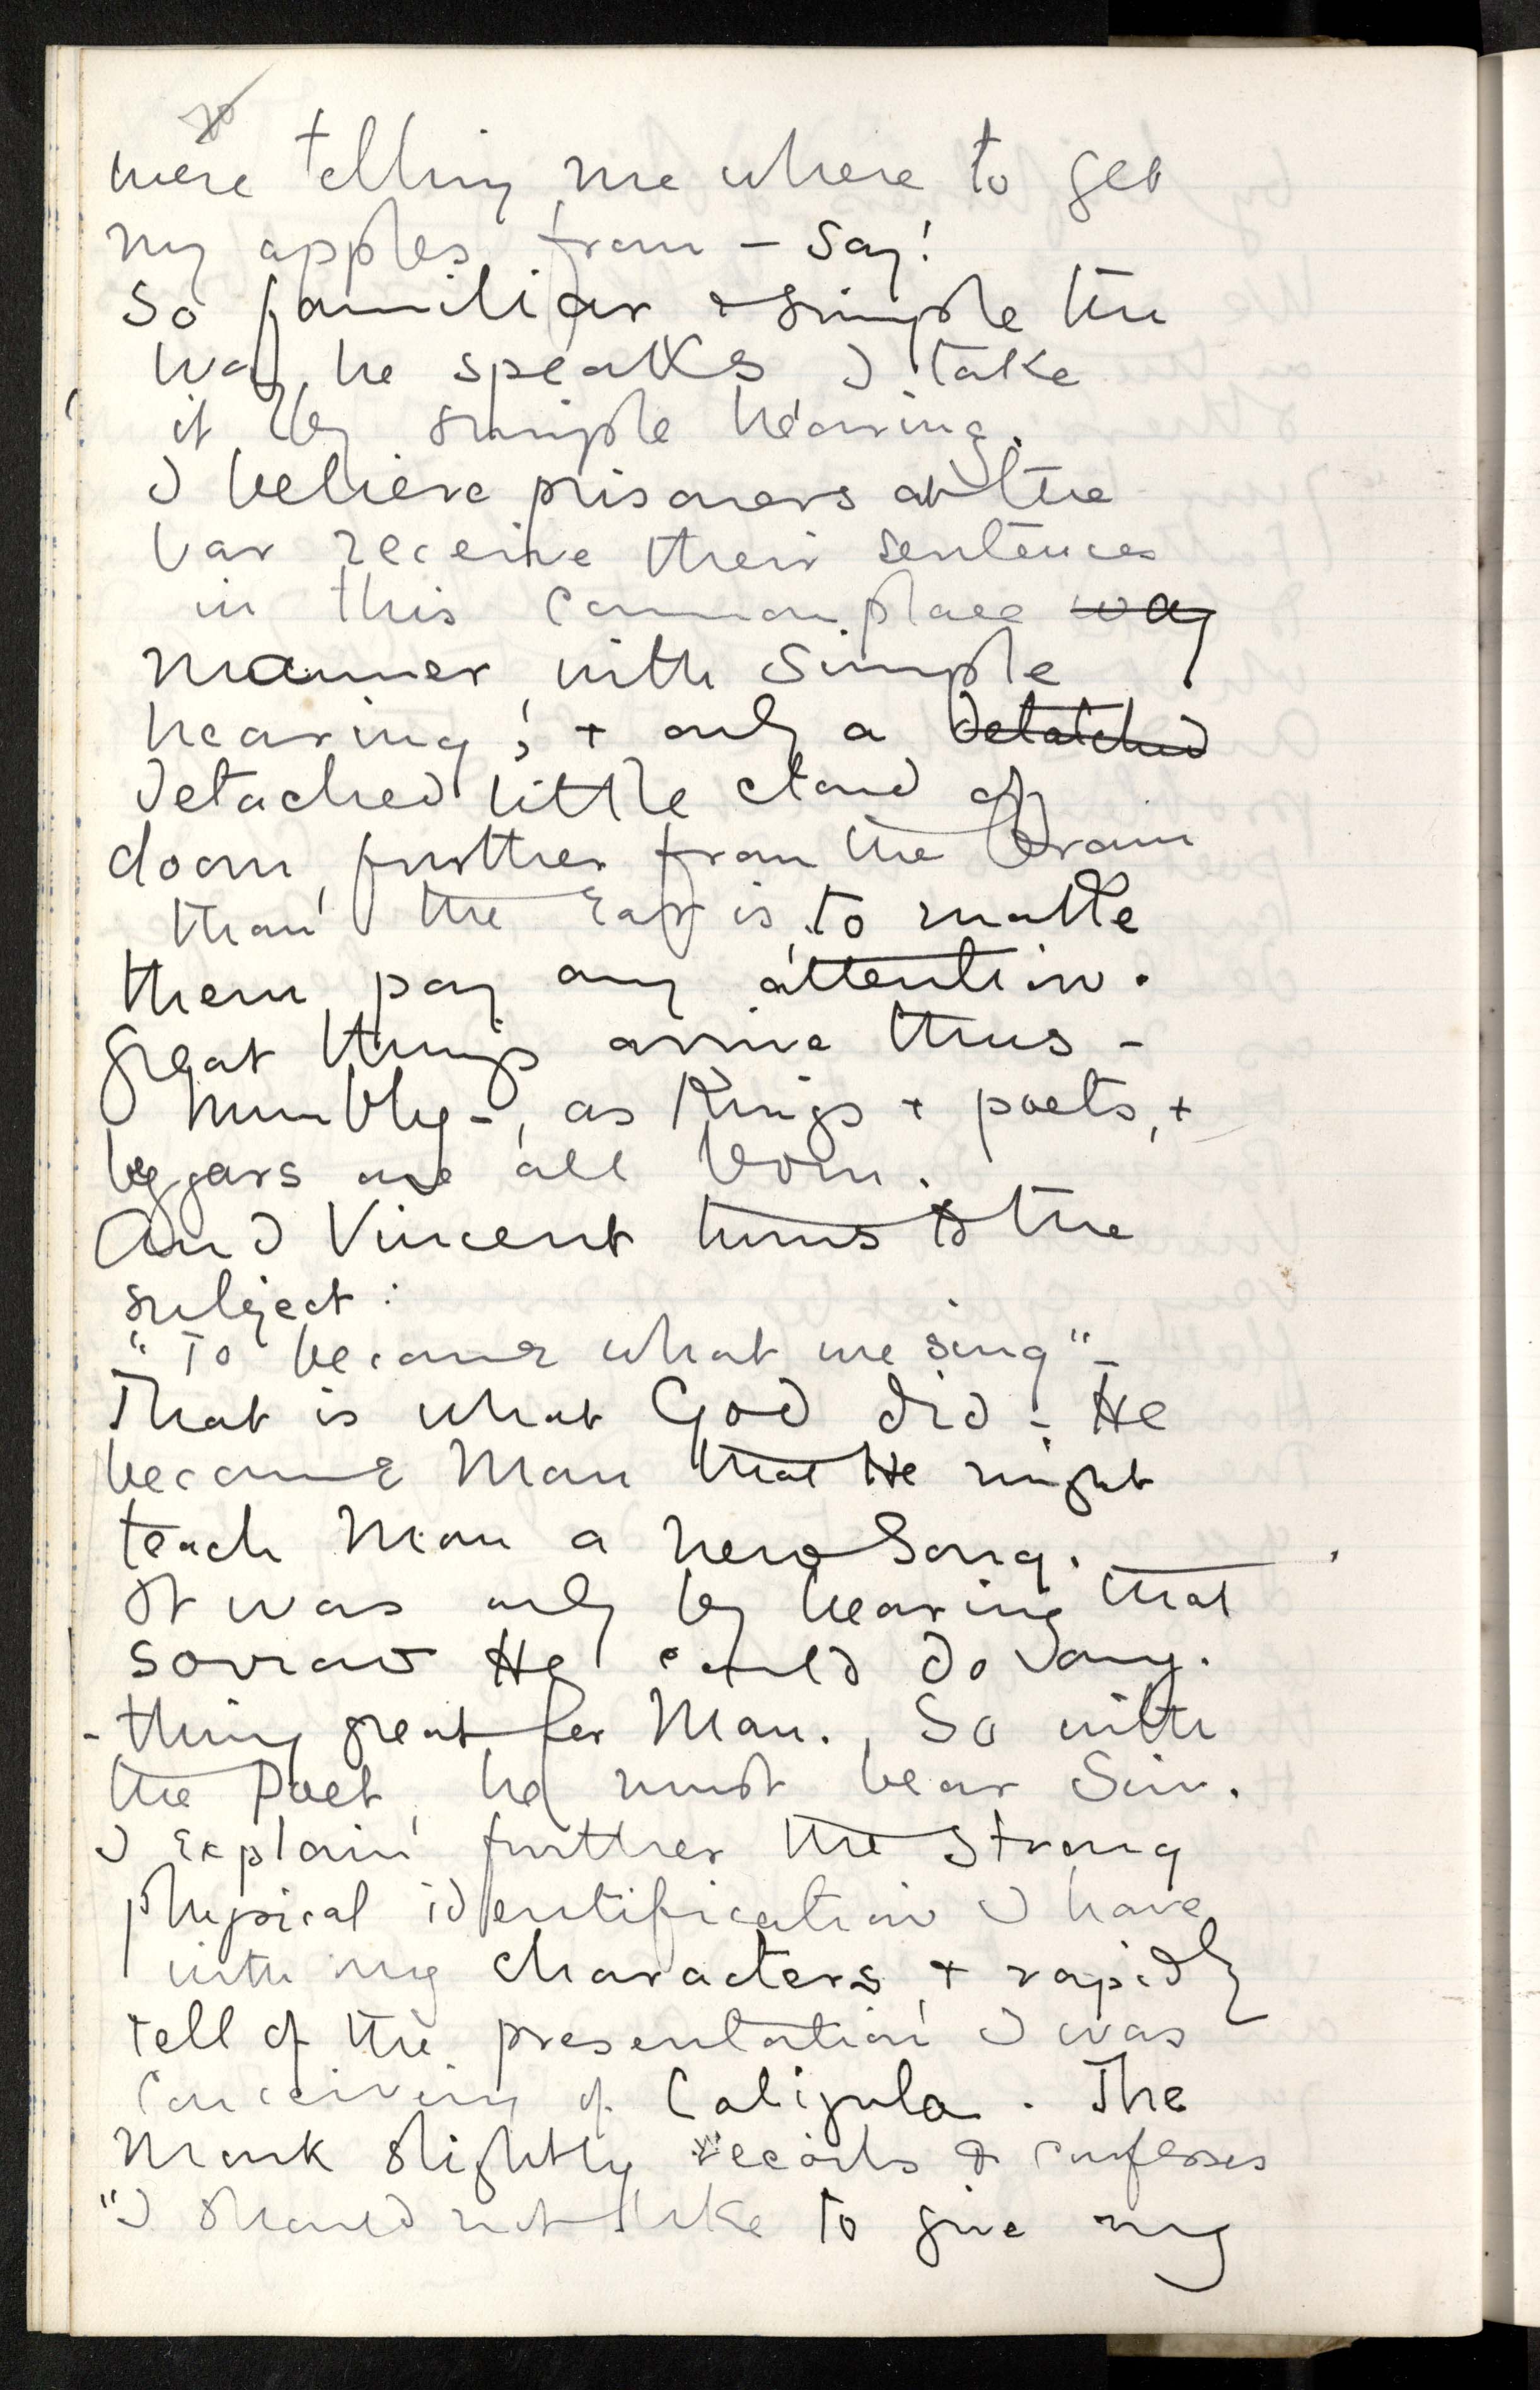 were telling me where to get
my apples from – say!
So familiar & simple the
way he speaks I take
it by simple hearing.
I believe prisoners at the
bar receive their sentences
in this commonplace way
manner with simple
hearing; + only a detatched
detached little cloud of
doom, further from the brain
than the Ear is, to make
them pay any attention.
Great things arrive thus –
humbly –, as Kings + poets, +
beggars are all born.
And Vincent turns to the
subject:
"To become what we sing" –
That is what God did – He
became Man that He might
teach Man a new Song.
It was only by bearing that
sorrow He could do any-
-thing great for Man. So with
the Poet he must bear Sin.
I Explain further the strong
physical identification I have
with my characters, + rapidly
tell of the presentation I was
conceiving of Caligula. The
Monk slightly recoils & confesses
"I should not like to give my